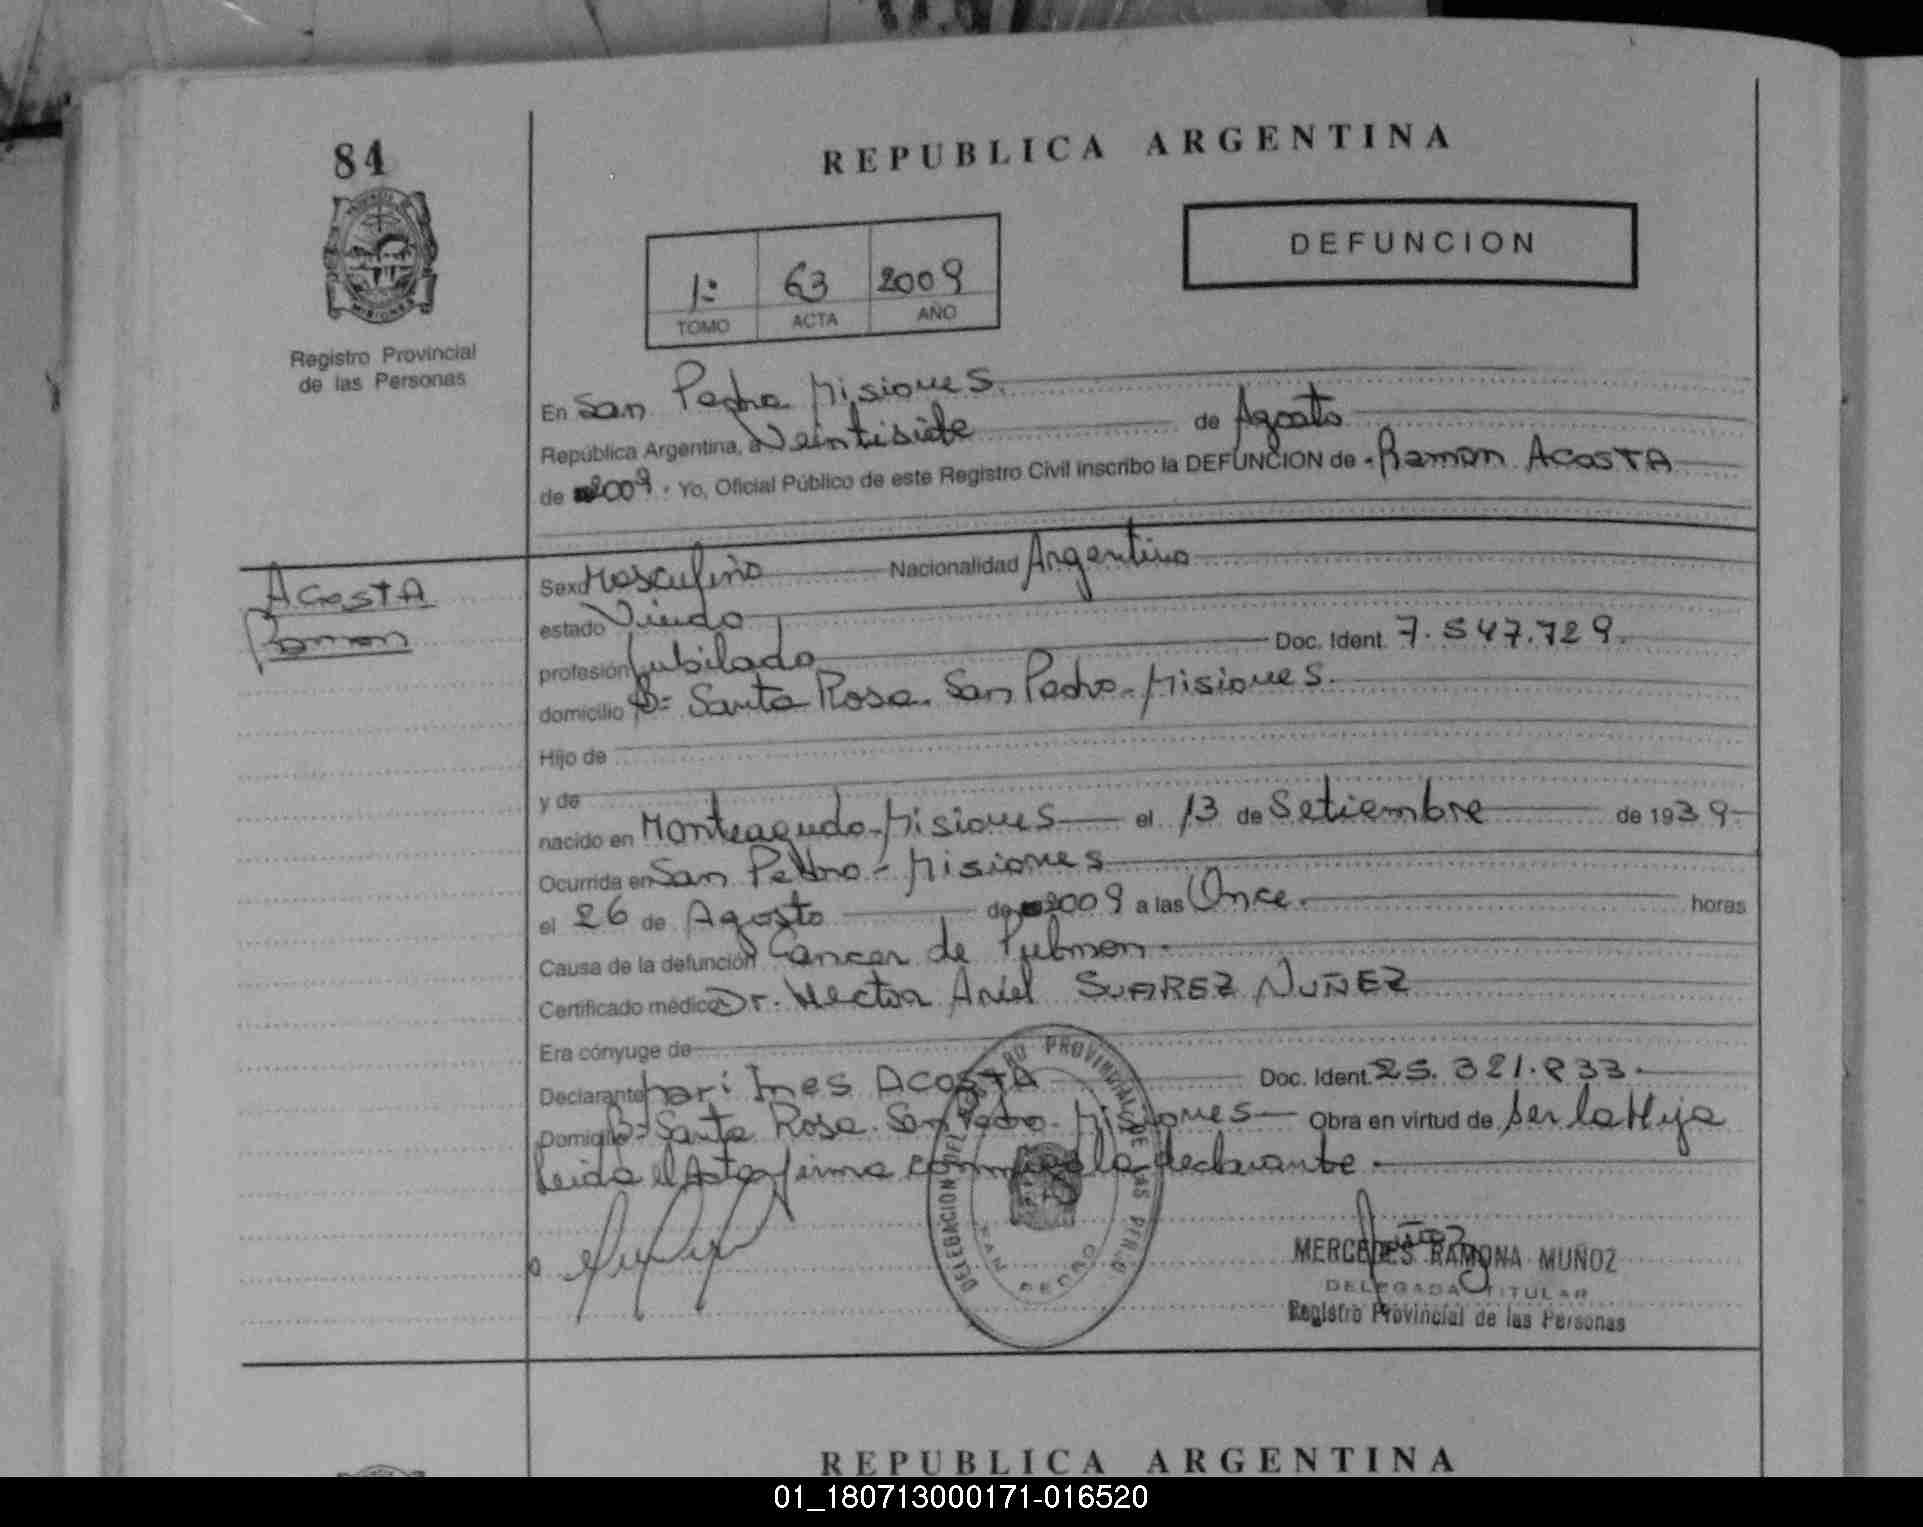 84
REPUBLICA ARGENTINA
DEFUNCION
1º 63 2009
TOMO ACTA AÑO
MISIONES
Registro Provincial
de las Personas
En San Pedro Misiones.
República Argentina, a Veintisiete de Agosto
de 2009. Yo, Oficial Público de este Registro Civil inscribo la DEFUNCION de Ramon ACOSTA
ACOSTA
Ramon
Sexo Masculino Nacionalidad Argentino
estado Viudo
profesión Jubilado Doc. Ident. 7.547.729.
domicilio Bº Santa Rosa. San Pedro-Misiones.
Hijo de
y de
nacido en Monteagudo-Misiones el 13 de Setiembre de 1939
Ocurrida en San Pedro-Misiones
el 26 de Agosto de 2009 a las Once. horas
Causa de la defunción Cancer de Pulmon.
Certificado médico Dr. Hector Ariel SUAREZ NUÑEZ
Era cónyuge de
Declarante Mari Ines ACOSTA Doc. Ident. 25.321.233.
Domicilio Bº Santa Rosa. San Pedro-Misiones Obra en virtud de ser la Hija
Leida el Acta firma conmigo la declarante.
DELEGACION DEL REGISTRO PROVINCIAL DE LAS PERS.
SAN PEDRO
MERCEDES RAMONA MUÑOZ
DELEGADA TITULAR
Registro Provincial de las Personas
REPUBLICA ARGENTINA
01_180713000171-016520